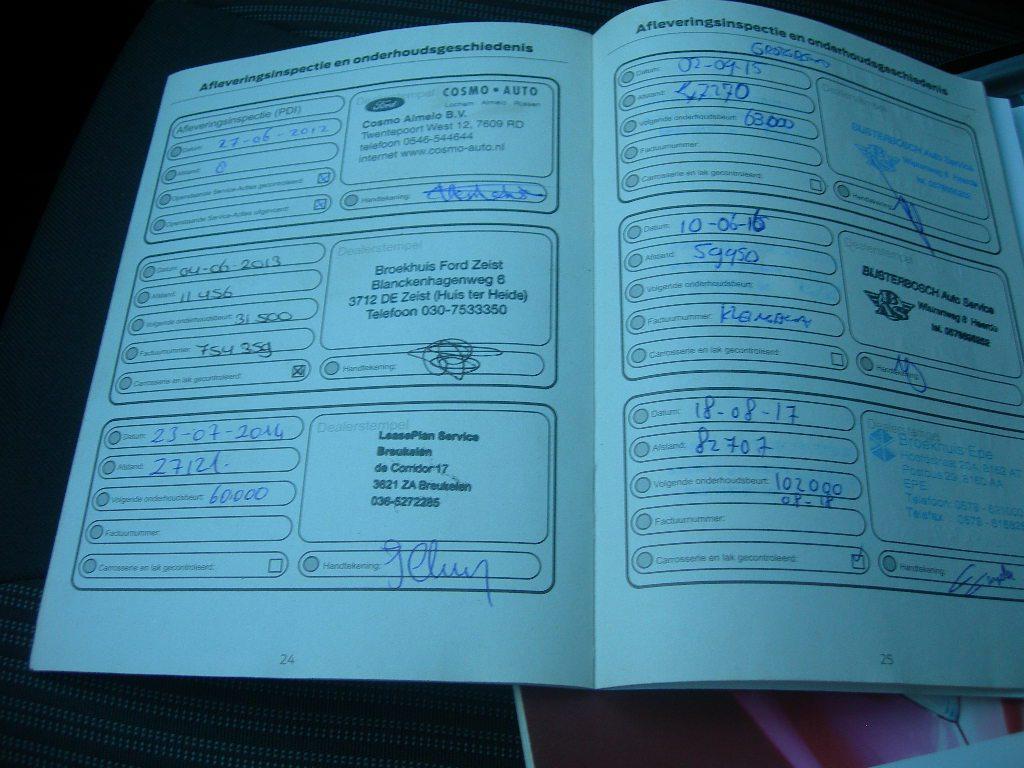 Afleveringsinspectie en onderhoudsgeschiedenis
Afleveringsinspectie (PDI)
Datum: 27-06-2012
Afstand: 8
Openstaande Service-Acties gecontroleerd:
Openstaande Service-Acties uitgevoerd:
Dealerstempel
Ford COSMO • AUTO
Lochem Almelo Rijssen
Cosmo Almelo B.V.
Twentepoort West 12, 7609 RD
telefoon 0546-544644
internet www.cosmo-auto.nl
Handtekening:
Datum: 04-06-2013
Afstand: 11 456
Volgende onderhoudsbeurt: 31.500
Factuurnummer: 754359
Carrosserie en lak gecontroleerd:
Dealerstempel
Broekhuis Ford Zeist
Blanckenhagenweg 6
3712 DE Zeist (Huis ter Heide)
Telefoon 030-7533350
Handtekening:
Datum: 23-07-2014
Afstand: 27121.
Volgende onderhoudsbeurt: 60.000
Factuurnummer:
Carrosserie en lak gecontroleerd:
Dealerstempel
LeasePlan Service
Breukelen
de Corridor 17
3621 ZA Breukelen
036-5272285
Handtekening:
24
Afleveringsinspectie en onderhoudsgeschiedenis
Datum: 02-04-15
Afstand: 47270
Volgende onderhoudsbeurt: 63.000
Factuurnummer:
Carrosserie en lak gecontroleerd:
Dealerstempel
BIJSTERBOSCH Auto Service
Wismweg 8 Heerde
tel. 0578696262
Handtekening:
Datum: 10-06-16
Afstand: 59950
Volgende onderhoudsbeurt:
Factuurnummer:
Carrosserie en lak gecontroleerd:
Dealerstempel
BIJSTERBOSCH Auto Service
Heerde
Handtekening:
Datum: 18-08-17
Afstand: 82707
Volgende onderhoudsbeurt: 102000
08-18
Factuurnummer:
Carrosserie en lak gecontroleerd:
Dealerstempel
Broekhuis Epe
Hoofdstraat 20A, 8162 AT
Postbus 29, 8160 AA
EPE
Telefoon 0578
Telefax 0578
Handtekening:
25